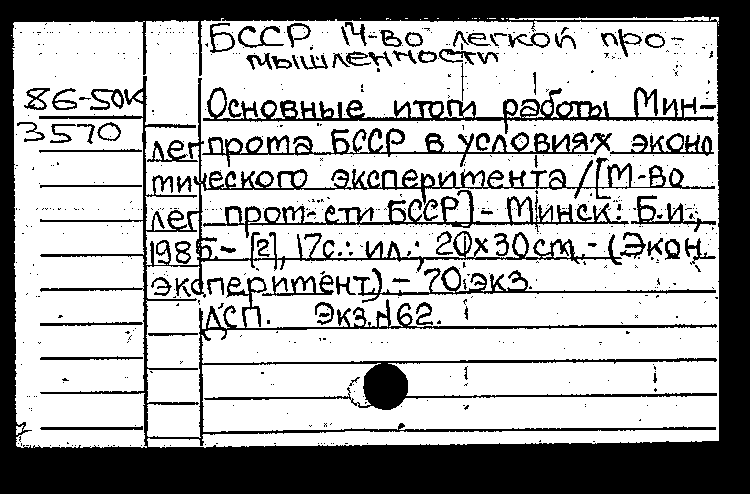 БССР. М-во легкой про-
мышленности
86-50к
3570
Основные итоги работы Мин-
легпрома БССР в условиях эконо
мического эксперимента / [М-во
лег пром-сти БССР] - Минск: Б.и.,
1985.- [2], 17с.: ил.; 20х30см.- (Экон.
эксперимент).- 70 экз.
ДСП. Экз.№62.